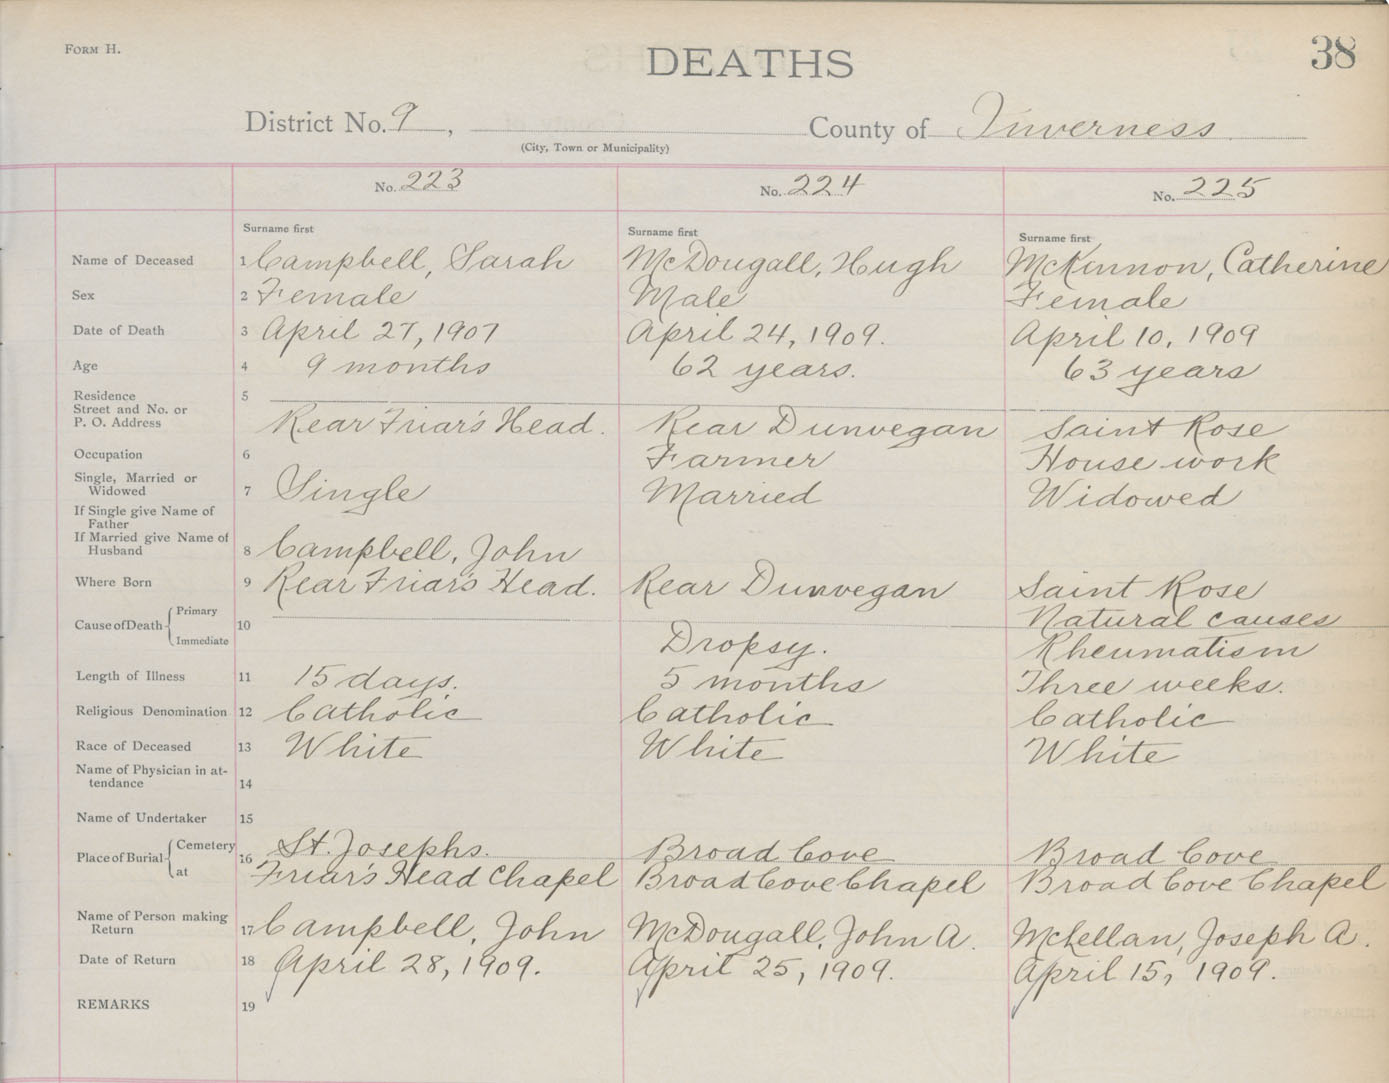 FORM H.
DEATHS
38
District No. 9, County of Inverness
(City, Town or Municipality)
No. 223 No. 224 No. 225
Surname first Surname first Surname first
Name of Deceased 1 Campbell, Sarah McDougall, Hugh McKinnon, Catherine
Sex 2 Female Male Female
Date of Death 3 April 27, 1907 April 24, 1909. April 10, 1909
Age 4 9 months 62 years. 63 years
Residence 5
Street and No. or
P. O. Address Rear Friar's Head. Rear Dunvegan Saint Rose
Occupation 6 Farmer House work
Single, Married or
Widowed 7 Single Married Widowed
If Single give Name of
Father
If Married give Name of
Husband 8 Campbell, John
Where Born 9 Rear Friar's Head. Rear Dunvegan Saint Rose
Cause of Death Primary 10 Natural causes
Immediate Dropsy. Rheumatism
Length of Illness 11 15 days. 5 months Three weeks.
Religious Denomination 12 Catholic Catholic Catholic
Race of Deceased 13 White White White
Name of Physician in at-
tendance 14
Name of Undertaker 15
Place of Burial Cemetery 16 St. Josephs. Broad Cove Broad Cove
at Friar's Head Chapel Broad Cove Chapel Broad Cove Chapel
Name of Person making
Return 17 Campbell, John McDougall, John A. McLellan, Joseph A.
Date of Return 18 April 28, 1909. April 25, 1909. April 15, 1909.
REMARKS 19